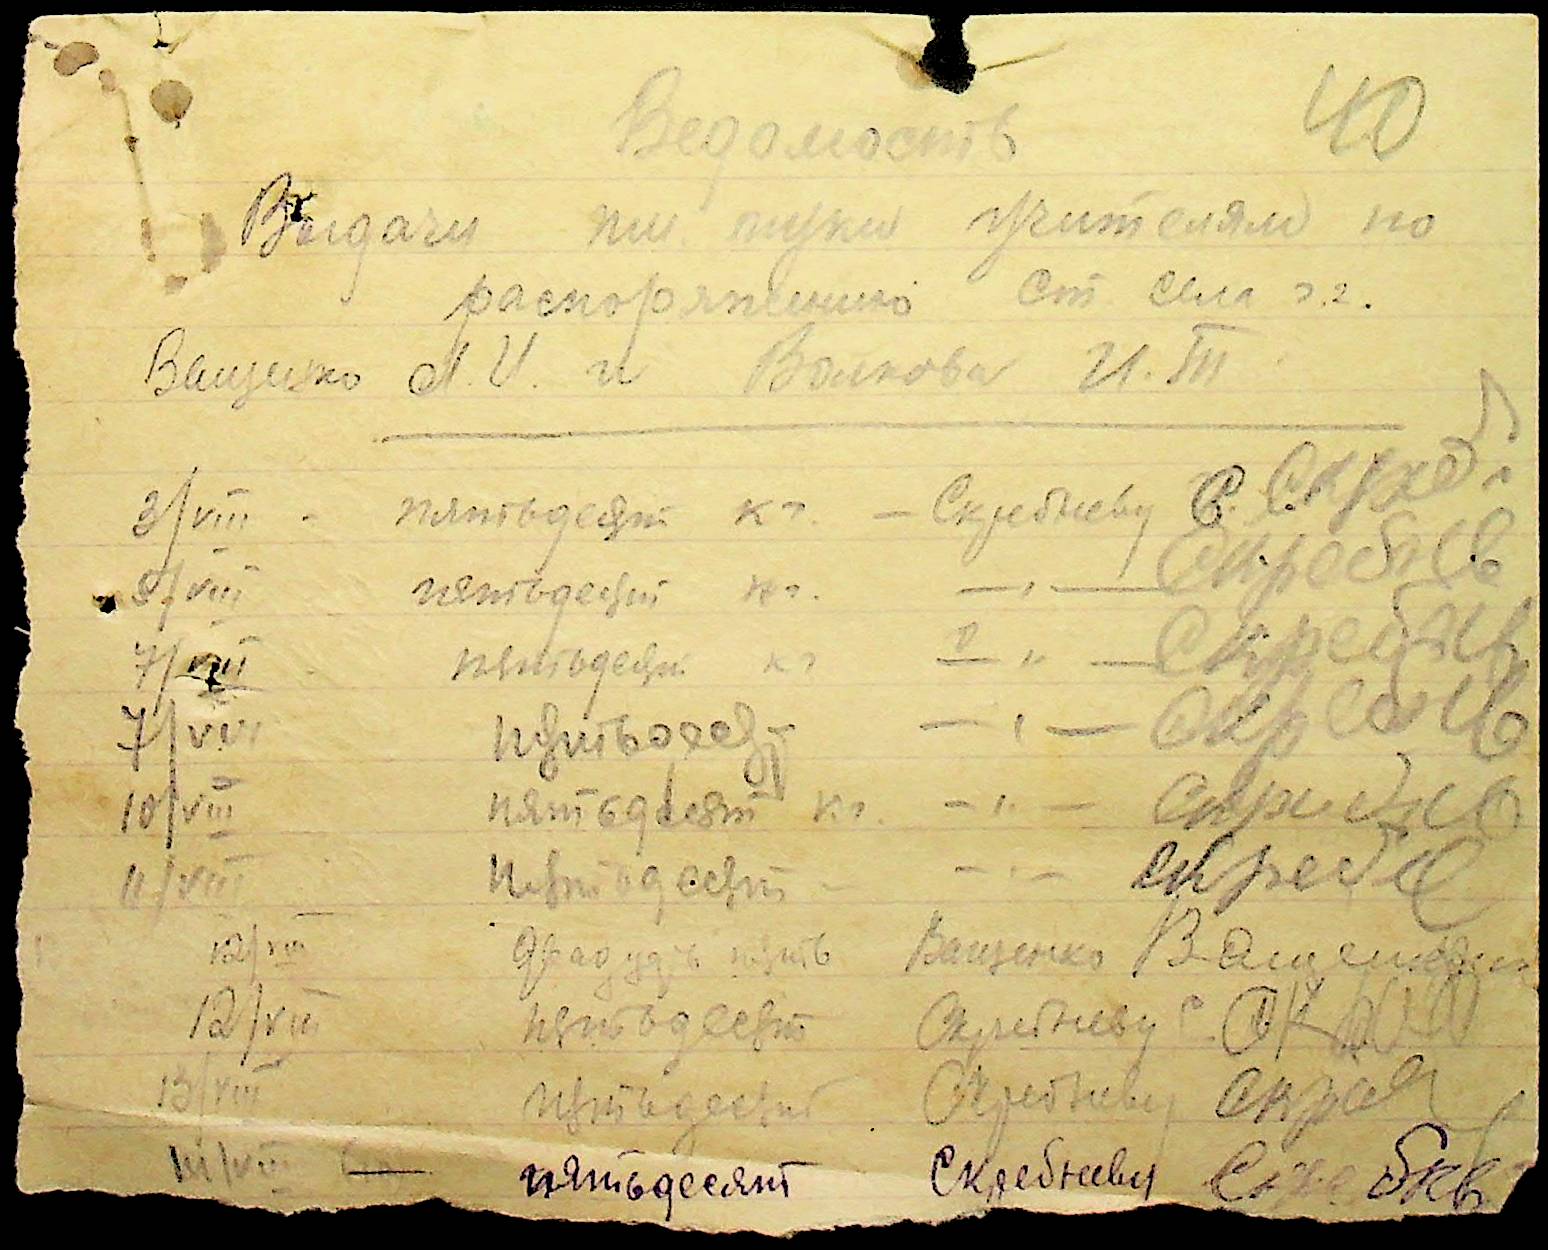 40
Ведомость
Выдачи пш. муки учителям по
распоряжению ст. села г.г.
Ващенко А.И. и Волкова И.Т.
3/VIII - пятьдесят кг. - Скребневу С.
5/VIII пятьдесят кг. — " — Скребнев
7/VIII - пятьдесят кг — " — Скребнев
7/VIII пятьдесят — " — Скребнев
10/VIII пятьдесят кг. — " — Скребнев
11/VIII пятьдесят — — " — Скреб
12/VIII двадцать пять Ващенко Ващенко
12/VIII пятьдесят Скребневу С.
13/VIII пятьдесят Скребневу
14/VIII — пятьдесят Скребневу